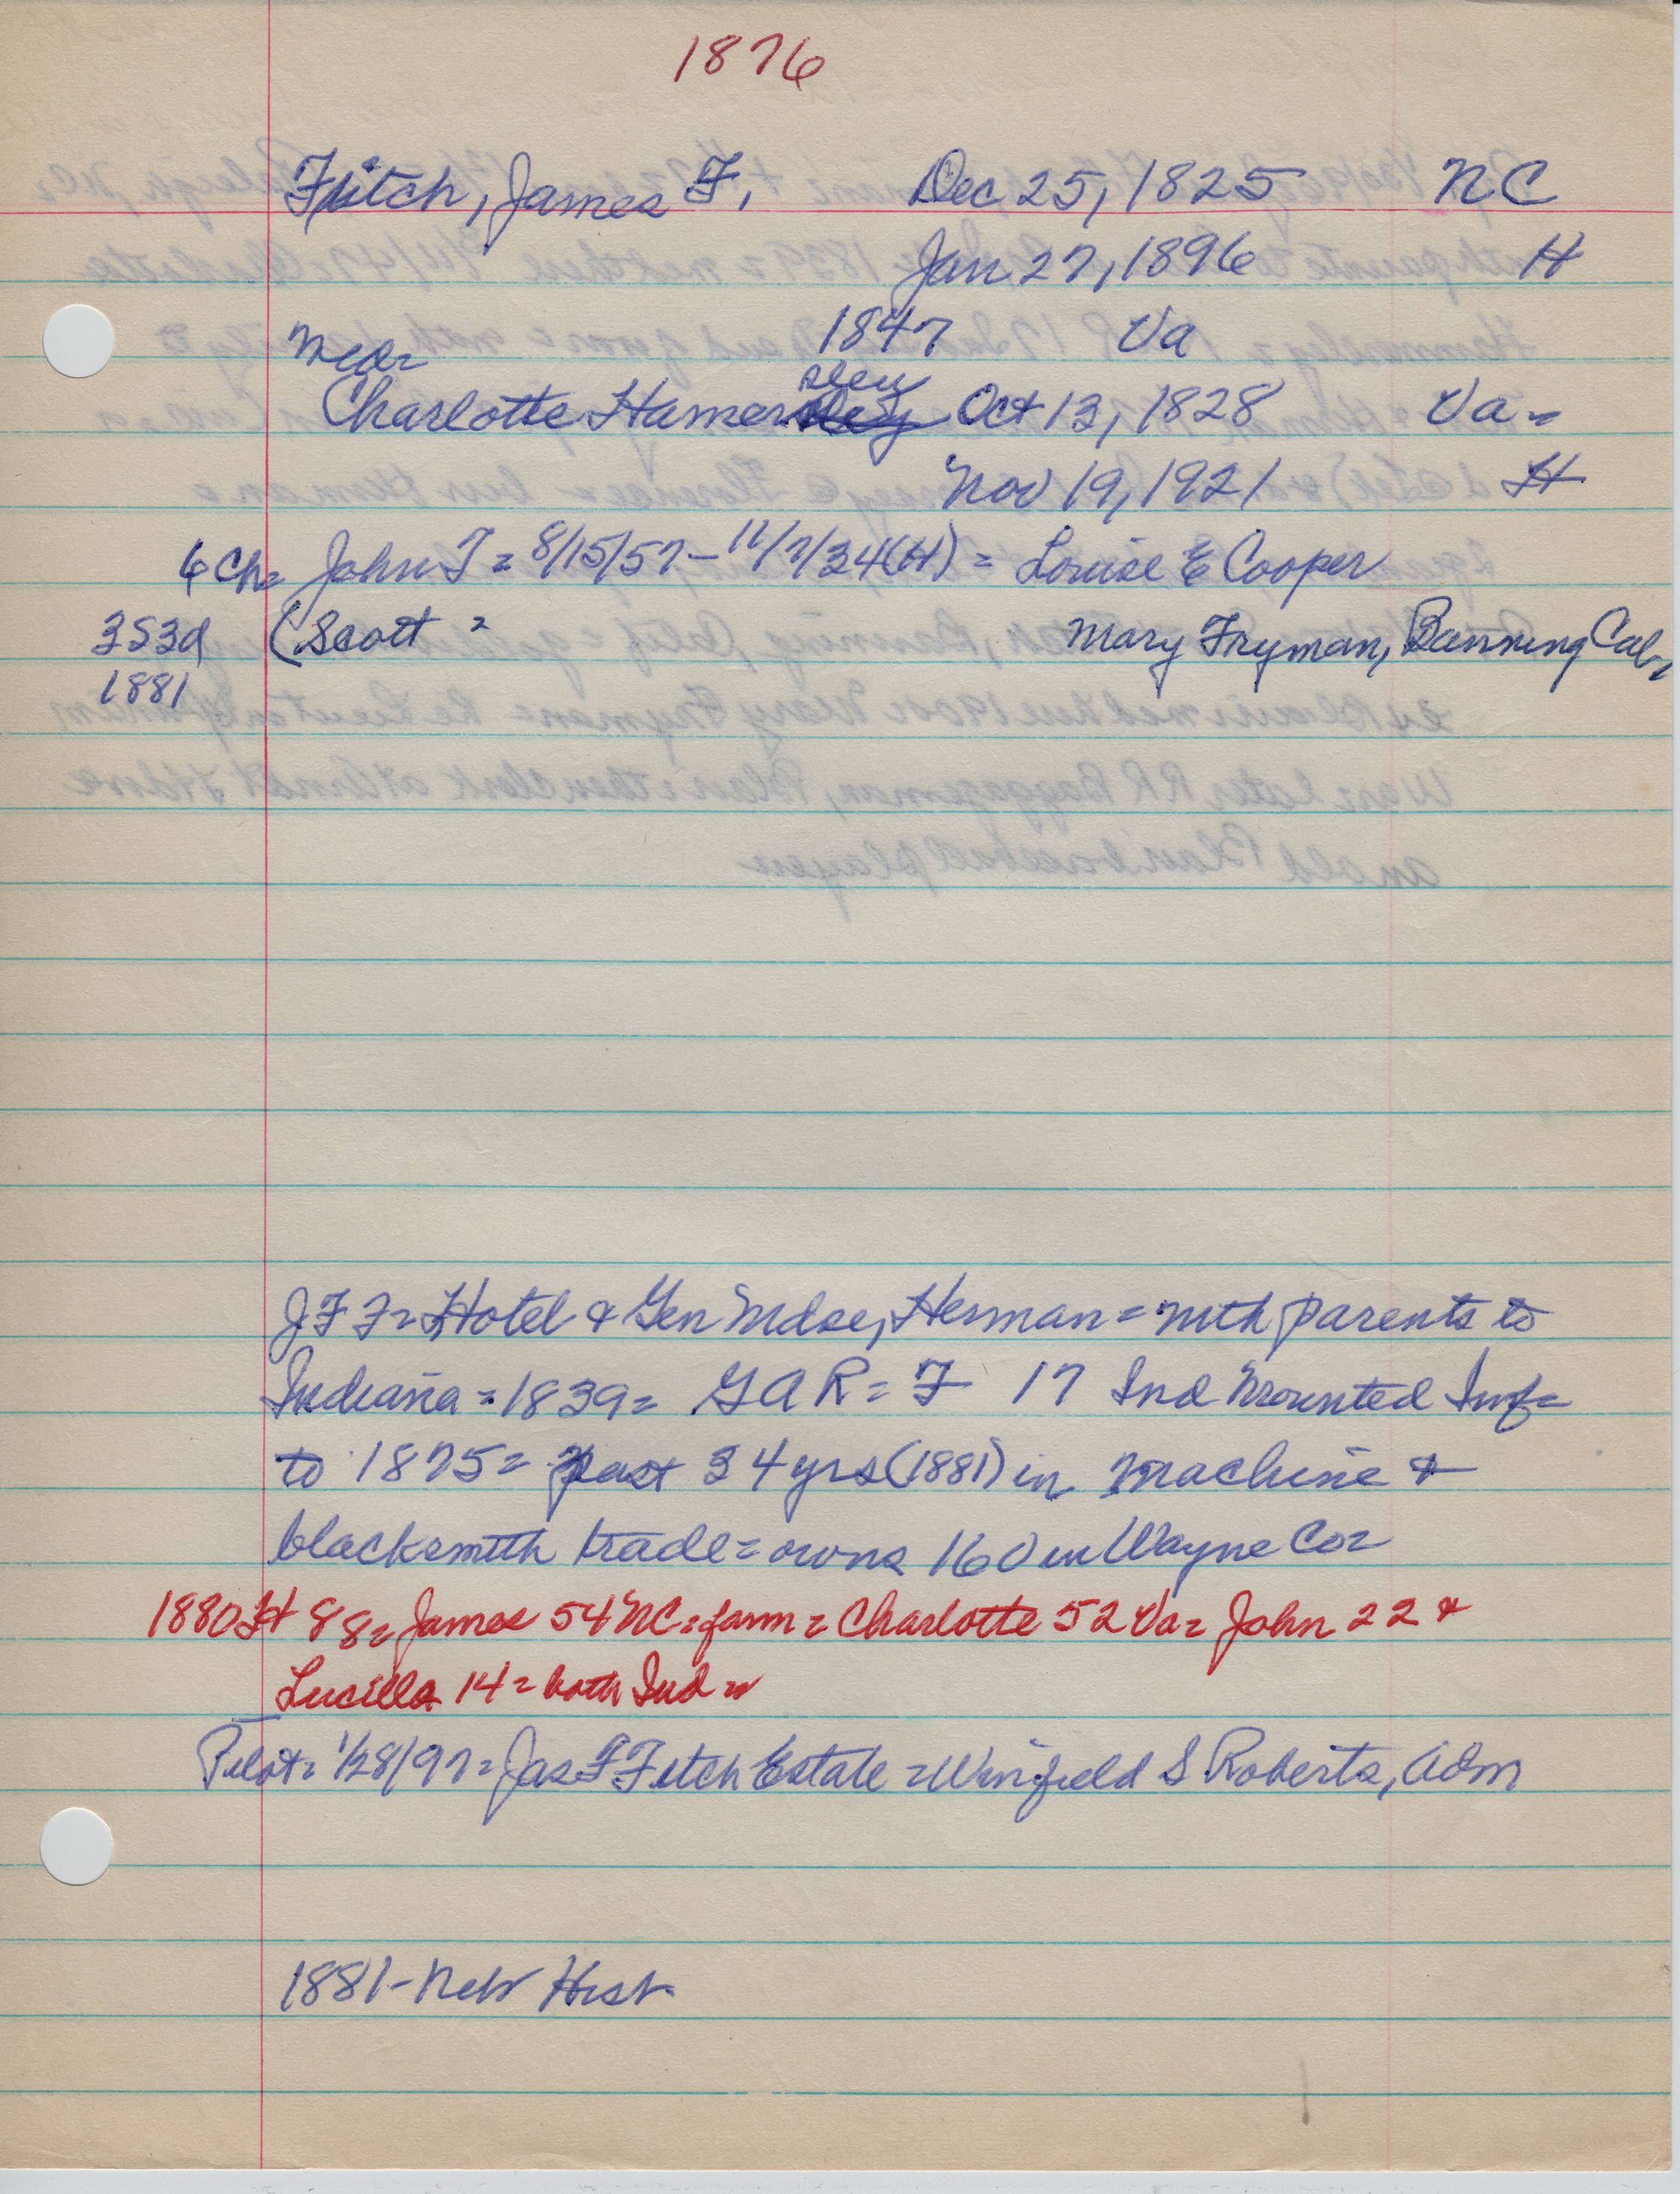 1876
Fitch, James F, Dec 25, 1825 NC
Jan 27, 1896 H
1847 Va
near
sley
Charlotte Hamersley Oct 13, 1828 Va =
Nov 19, 1921 H
6 Ch = John T = 8/15/57 - 11/7/34 (H) = Louise E Cooper
3S3d (Scott = Mary Fryman, Banning Cal,
1881
J F F = Hotel & Gen Mdse, Herman = with parents to
Indiana = 1839 = GAR = F 17 Ind Mounted Inf =
to 1875 = past 34 yrs (1881) in machine &
blacksmith trade = owns 160 in Wayne Co =
1880 H 88 = James 54 NC = farm = Charlotte 52 Va = John 22 &
Lucilla 14 = both Ind =
Pilot = 1/28/97 = Jas F Fitch Estate = Winfield S Roberts, Adm
1881 - Neb Hist